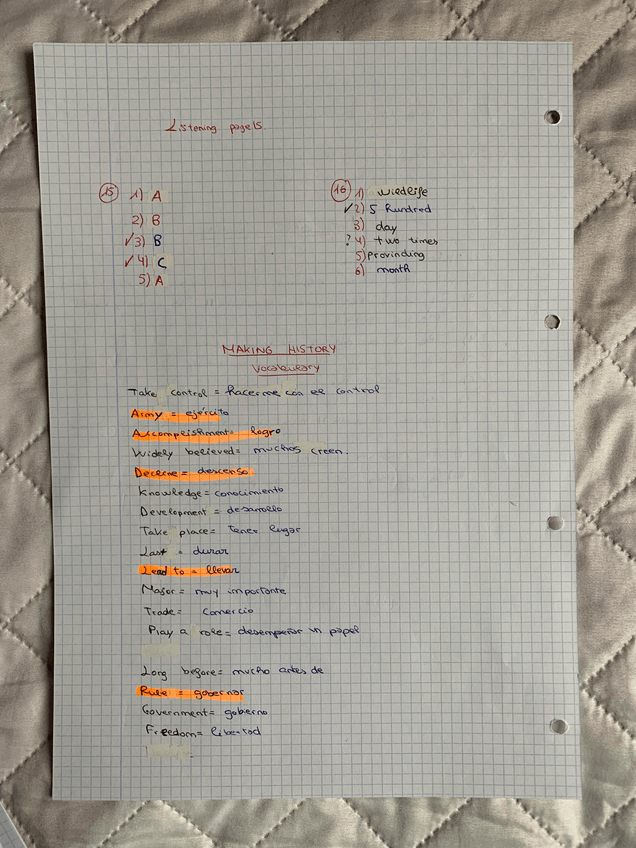 Listening page 15.
15 1) A
2) B
✓3) B
✓4) C
5) A
16 1) wildlife
✓2) 5 hundred
3) day
? 4) two times
5) Provinding
6) month
MAKING HISTORY
Vocabulary
Take control = hacerme con el control
Army = ejército
Accomplishment = logro
Widely believed = muchos creen.
Decline = descenso
Knowledge = conocimiento
Development = desarrollo
Take place = tener lugar
Last = durar
Lead to = llevar
Major = muy importante
Trade = Comercio
Play a role = desempeñar un papel
Long before = mucho antes de
Rule = gobernar
Government = gobierno
Freedom = libertad